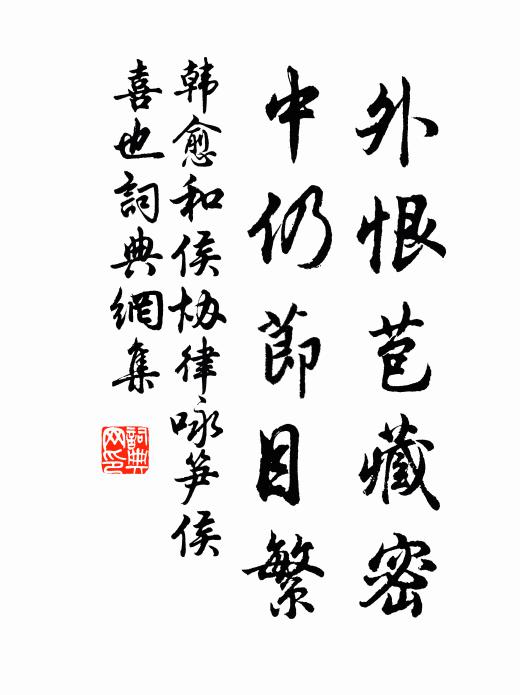 外恨苞藏密
中仍節目繁
韩愈和侯协律咏笋侯
喜也詞典網集
詞典
网印